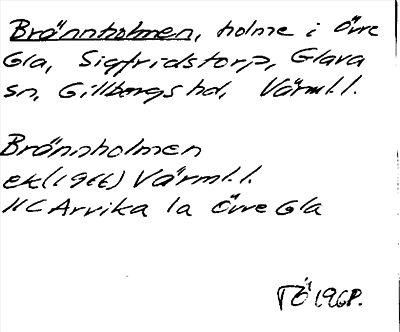 Brännholmen, holme i Övre
Gla, Sigfridstorp, Glava
sn, Gillbergs hd, Värml.l.
Brännholmen
ek (1966) Värml.l.
11C Arvika 1a Övre Gla
TÖ 1968.